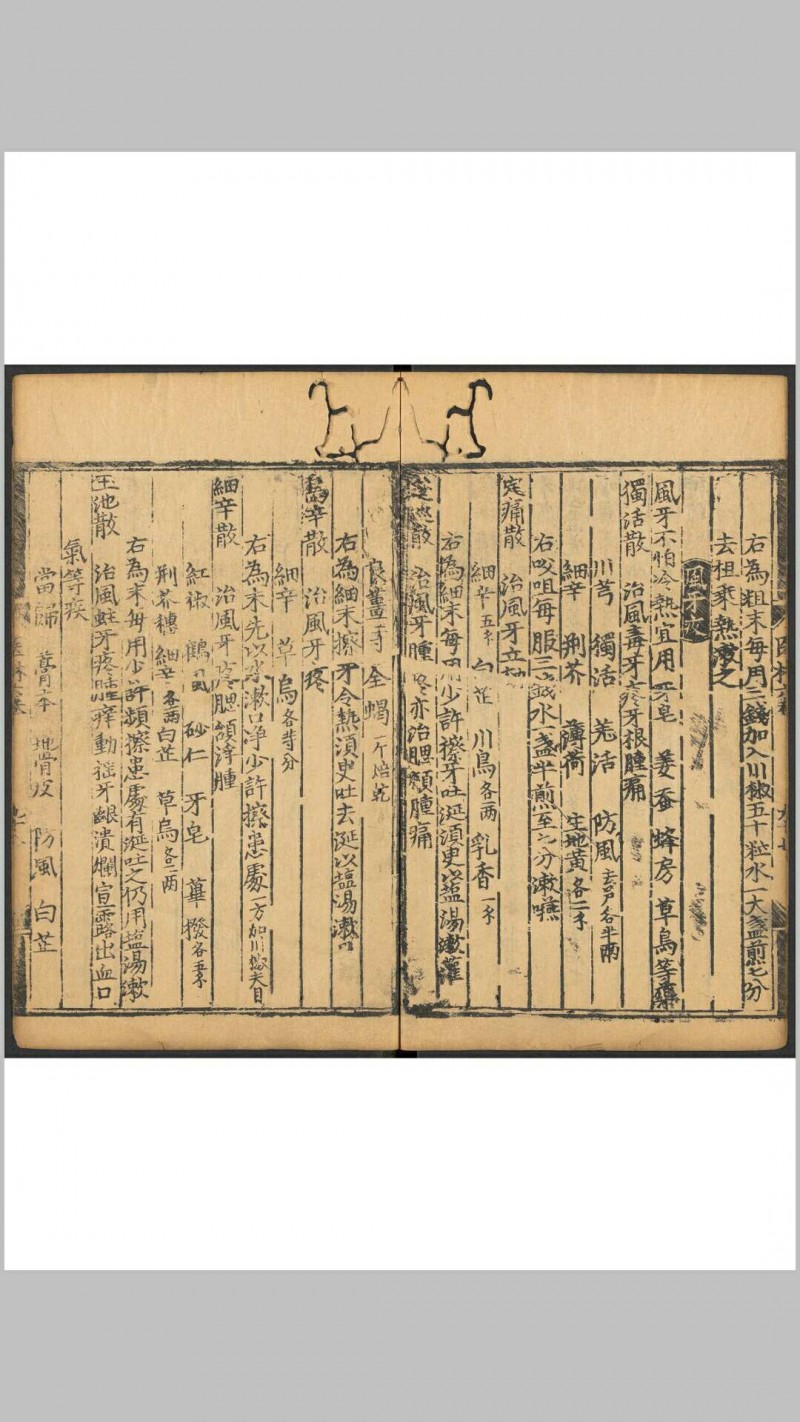 右為粗末每用三錢加入川椒五十粒水一大盞煎七分
去柤乘熱漱之
風牙不怕冷熱宜用牙皂姜蚕蜂房草烏等藥
獨活散 治風毒牙疼牙根腫痛
川芎 獨活 羌活 防風去芦各半兩
細辛 荆芥 薄荷 生地黃各二 
右㕮咀每服三錢水一盞半煎至七分漱嚥
定痛散 治風牙立
細辛五 白芷 川烏各一兩 乳香一
右為細末每 少許擦牙吐涎須臾以塩湯漱
 散 治風牙腫疼亦治腮頰腫痛
良薑一寸 全蝎一个焙乾
右為細末擦牙令熱須臾吐去涎以塩湯漱口
烏辛散 治風牙疼
細辛 草烏各等分
右為末先以水漱口净少許擦患處一方加川椒 
細辛散 治風牙疼腮頷浮腫
紅椒 鶴虱 砂仁 牙皂 蓽撥各 
荆芥穗 細辛各一兩 白芷 草烏各二兩
右為末每用少許頻擦患處有涎吐之仍用塩湯漱
玉池散 治風蛀牙疼腫痒動揺牙齦潰爛宣露出血口
氣等疾
當歸 藁本 地骨皮 防風 白芷